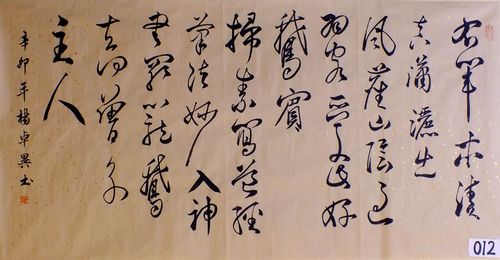 右軍本清
真瀟灑出
風塵山陰過
羽客愛此好
鵝賓
掃素寫道經
筆精妙入神
書罷籠鵝
去何曾別
主人
辛卯年楊卓異書
012